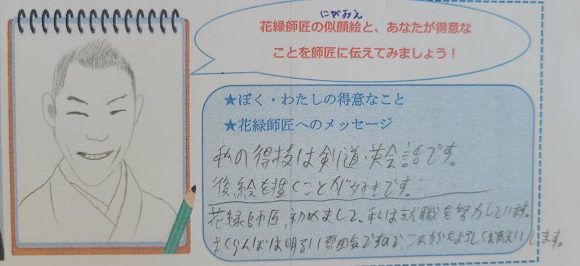 にがおえ
花緑師匠の似顔絵と、あなたが得意な
ことを師匠に伝えてみましょう！
★ぼく・わたしの得意なこと
★花緑師匠へのメッセージ
私の得技は剣道・英会話です。
後絵を描くことが好きです。
花緑師匠、初めまして。私は就職を努力しています。
さくらんぼは明るい雰囲気ですので、これからもよろしくお願いします。